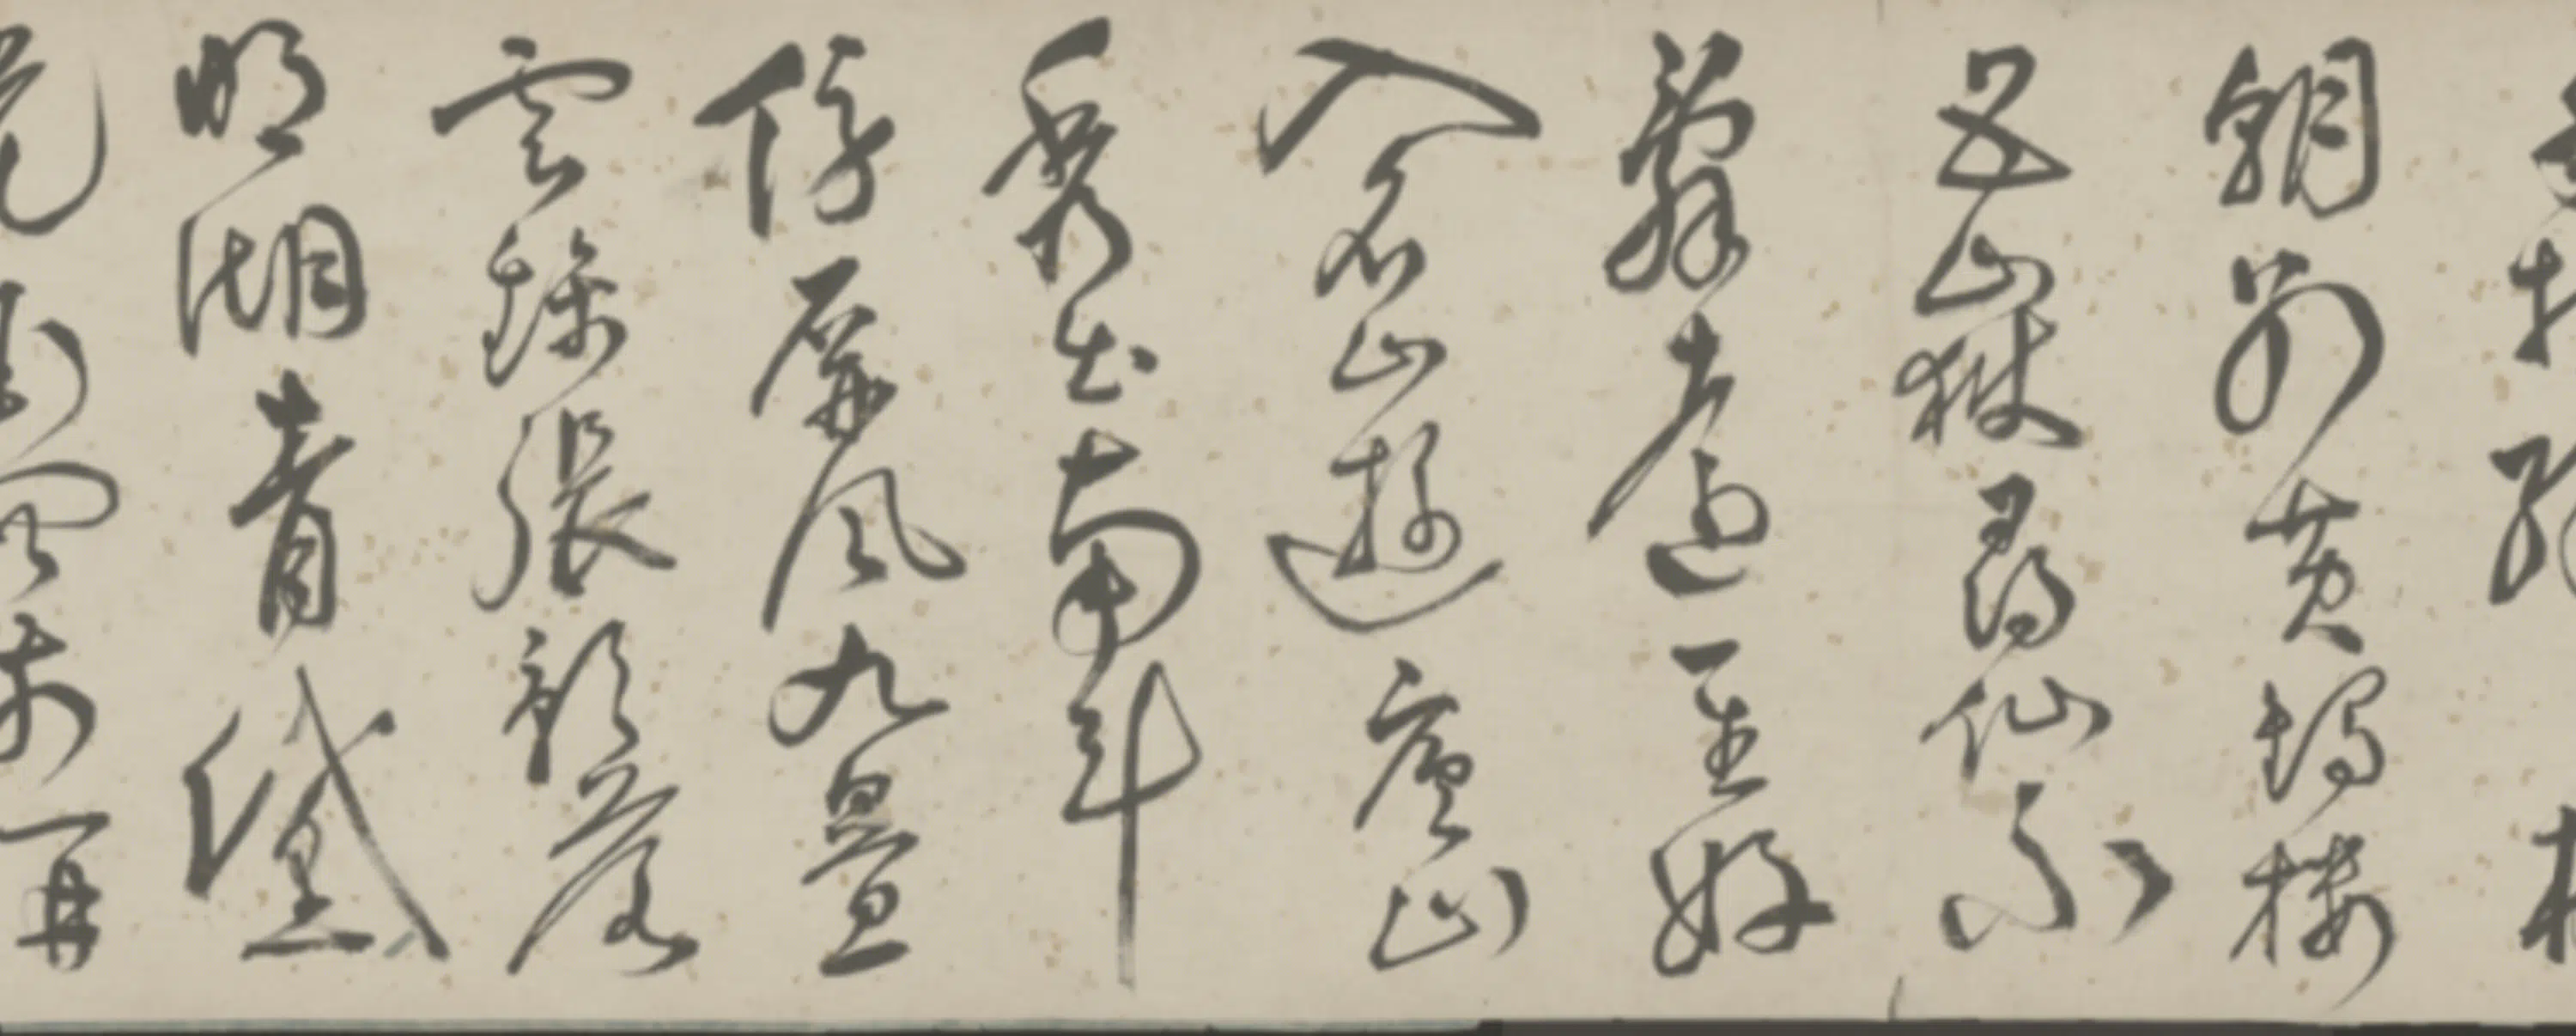 朝別黃鶴樓
五嶽尋仙不
辭遠一生好
入名山遊廬山
秀出南斗
傍屏風九疊
雲錦張影落
明湖青黛